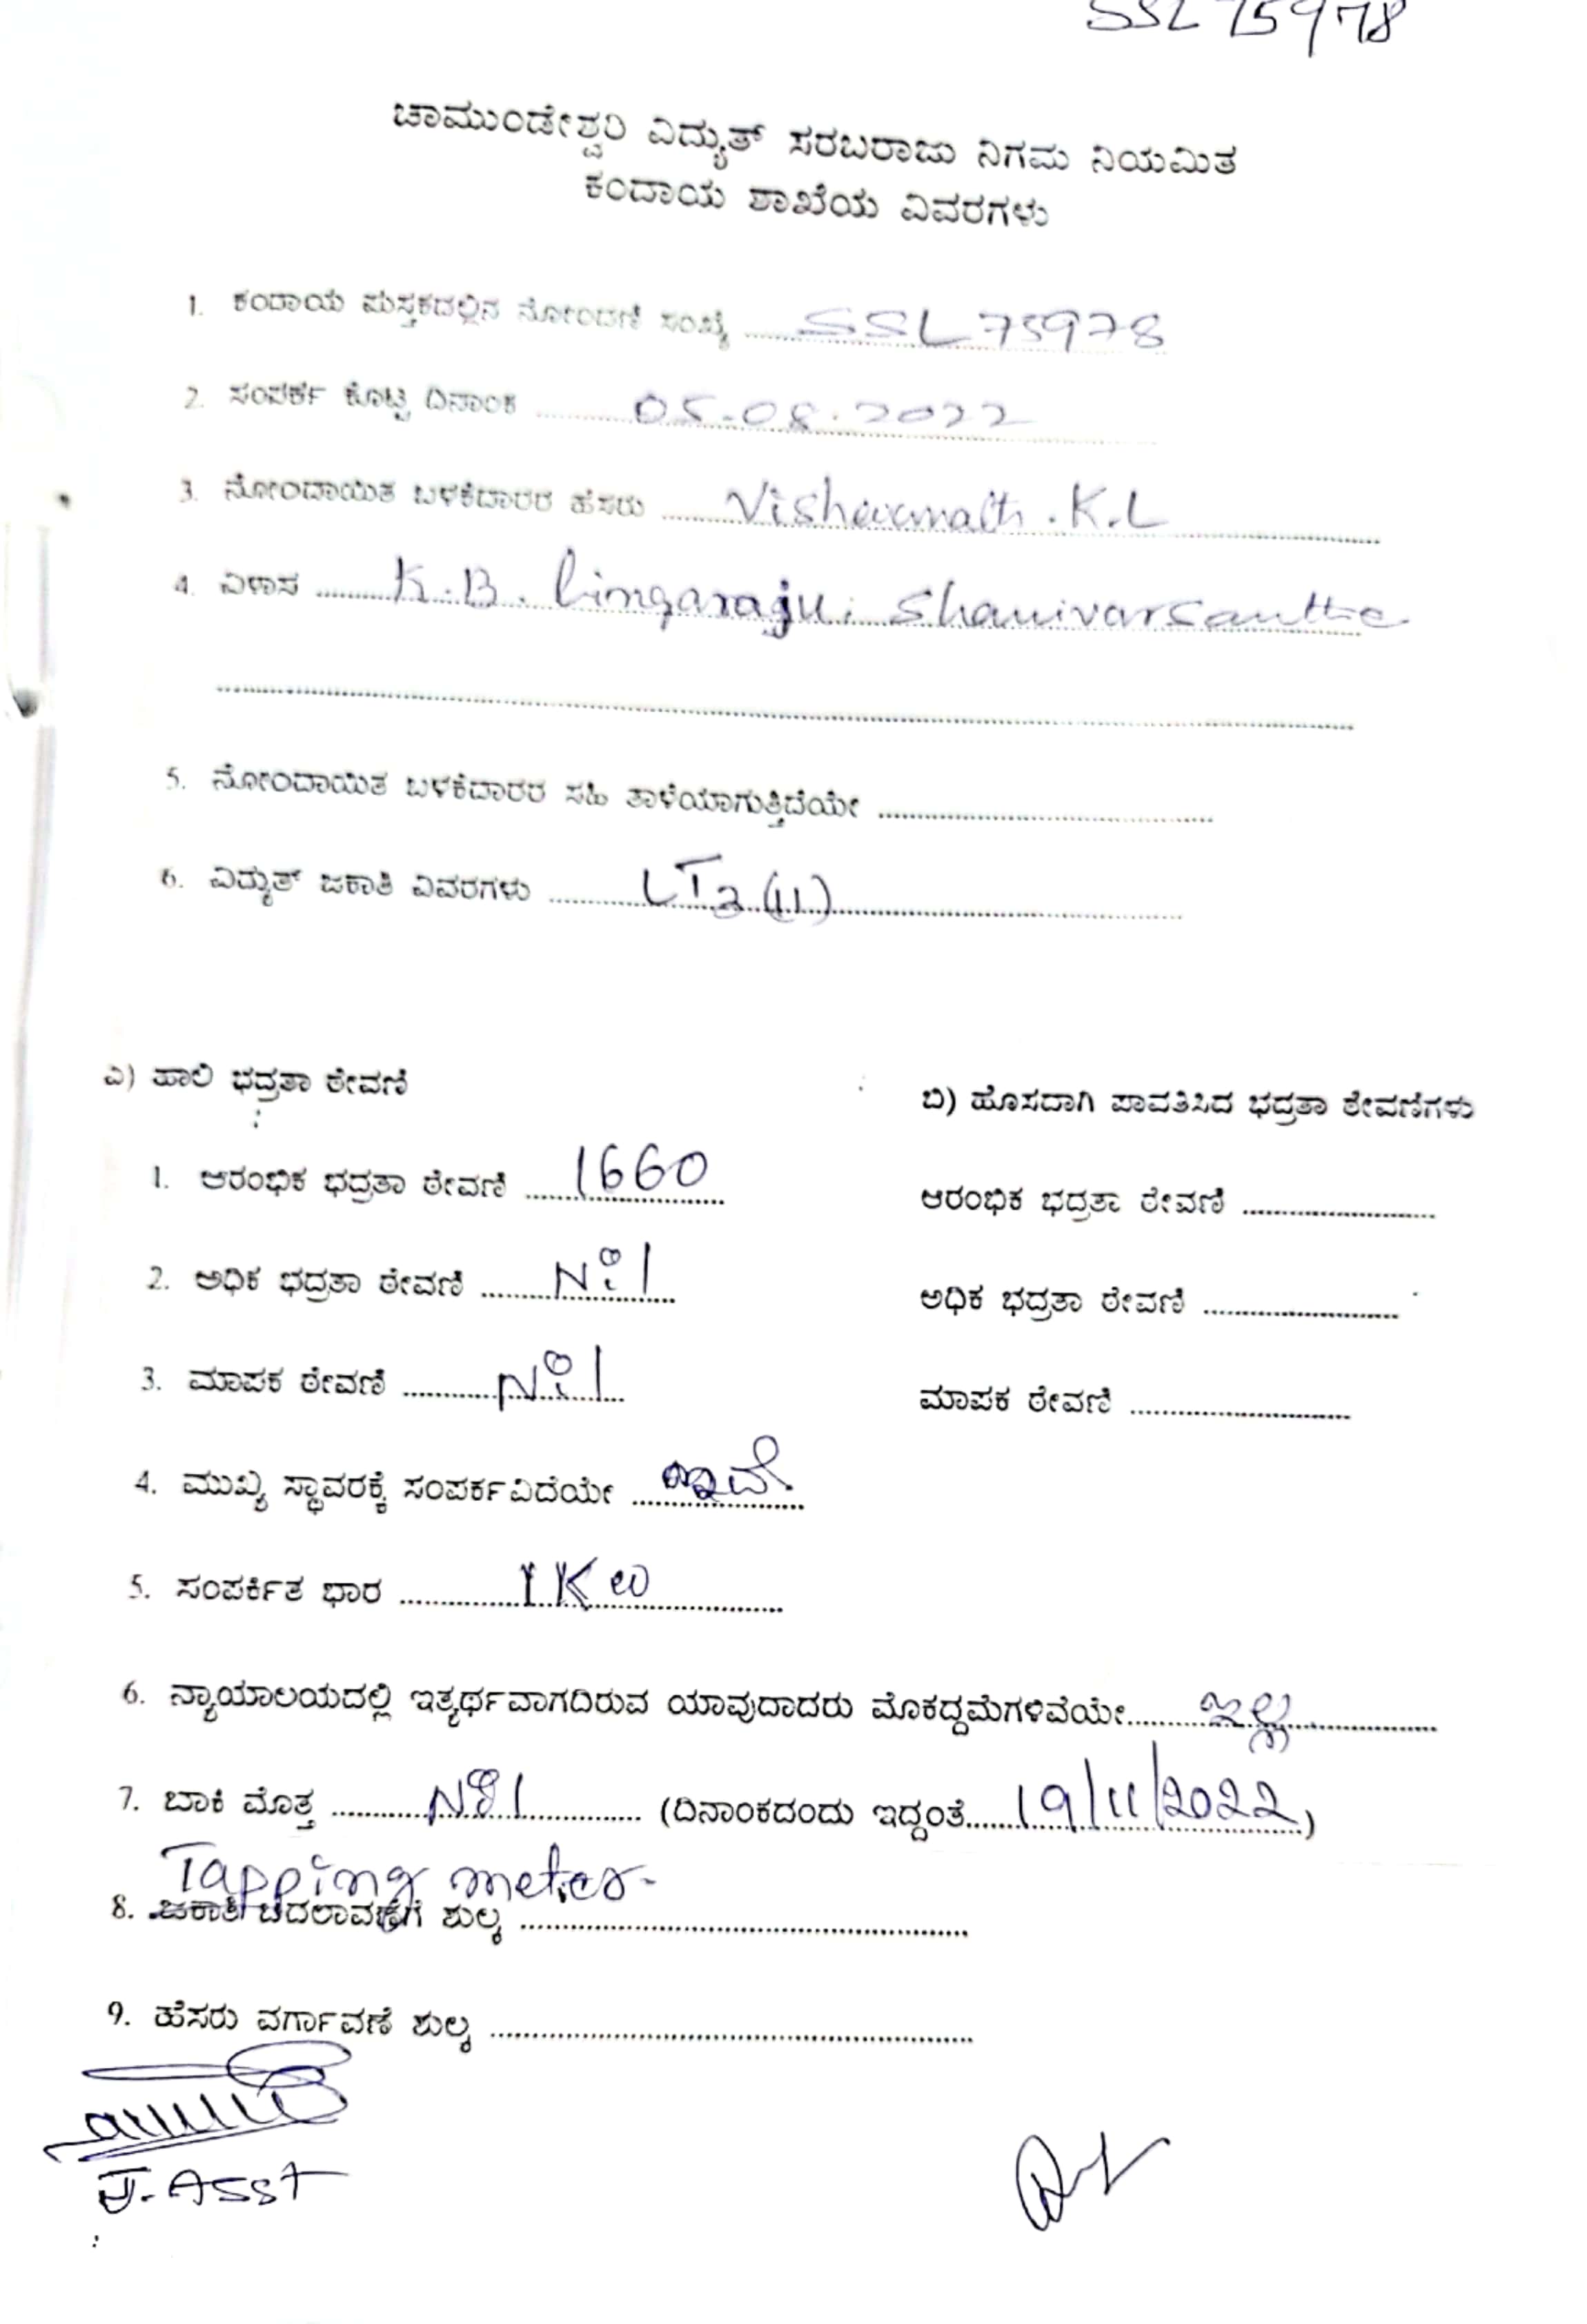 SSL 75978
ಚಾಮುಂಡೇಶ್ವರಿ ವಿದ್ಯುತ್ ಸರಬರಾಜು ನಿಗಮ ನಿಯಮಿತ
ಕಂದಾಯ ಶಾಖೆಯ ವಿವರಗಳು
1. ಕಂದಾಯ ಪುಸ್ತಕದಲ್ಲಿನ ನೋಂದಣಿ ಸಂಖ್ಯೆ SSL 75978
2. ಸಂಪರ್ಕ ಕೊಟ್ಟ ದಿನಾಂಕ 05-08-2022
3. ನೋಂದಾಯಿತ ಬಳಕೆದಾರರ ಹೆಸರು Vishwanath . K.L
4. ವಿಳಾಸ K.B. Lingaraju, Shanivarsanthe
5. ನೋಂದಾಯಿತ ಬಳಕೆದಾರರ ಸಹಿ ತಾಳೆಯಾಗುತ್ತಿದೆಯೇ
6. ವಿದ್ಯುತ್ ಜಕಾತಿ ವಿವರಗಳು LT2 (II)
ಎ) ಹಾಲಿ ಭದ್ರತಾ ಠೇವಣಿ
ಬಿ) ಹೊಸದಾಗಿ ಪಾವತಿಸಿದ ಭದ್ರತಾ ಠೇವಣಿಗಳು
1. ಆರಂಭಿಕ ಭದ್ರತಾ ಠೇವಣಿ 1660
ಆರಂಭಿಕ ಭದ್ರತಾ ಠೇವಣಿ
2. ಅಧಿಕ ಭದ್ರತಾ ಠೇವಣಿ Nil
ಅಧಿಕ ಭದ್ರತಾ ಠೇವಣಿ
3. ಮಾಪಕ ಠೇವಣಿ Nil
ಮಾಪಕ ಠೇವಣಿ
4. ಮುಖ್ಯ ಸ್ಥಾವರಕ್ಕೆ ಸಂಪರ್ಕವಿದೆಯೇ ಇದೆ.
5. ಸಂಪರ್ಕಿತ ಭಾರ 1Kw
6. ನ್ಯಾಯಾಲಯದಲ್ಲಿ ಇತ್ಯರ್ಥವಾಗದಿರುವ ಯಾವುದಾದರು ಮೊಕದ್ದಮೆಗಳಿವೆಯೇ ಇಲ್ಲ
7. ಬಾಕಿ ಮೊತ್ತ Nil (ದಿನಾಂಕದಂದು ಇದ್ದಂತೆ 19/11/2022)
Tapping meter
8. ಜಕಾತಿ ಬದಲಾವಣೆಗೆ ಶುಲ್ಕ
9. ಹೆಸರು ವರ್ಗಾವಣೆ ಶುಲ್ಕ
J. Asst